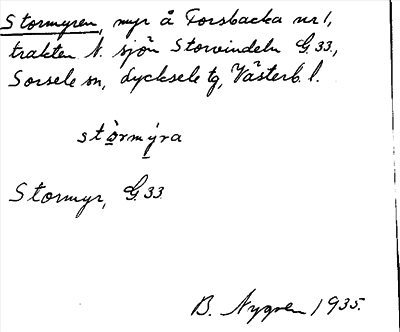 Stormyren, myr å Forsbacka nr 1,
trakten N. sjön Storvindeln G 33,
Sorsele sn, Lycksele tg, Västerb. l.
stòrmýra
Stormyr, G. 33.
B. Nygren 1935.